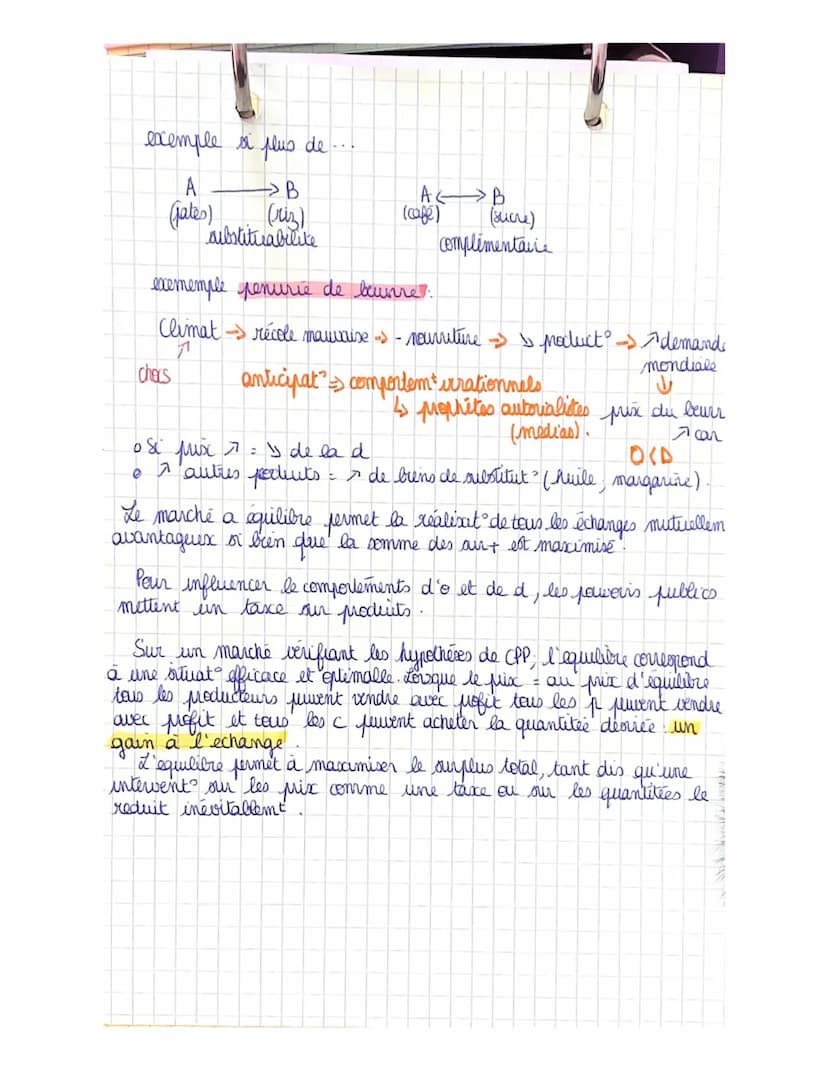 exemple si plus de ...
A → B A ↔ B
(pates) (riz) (café) (sucre)
substituabilite complémentaire
exememple penurie de beurre :
Climat → récole mauvaise → - nourriture → ↘ product° → ↗ demande
mondiale
↗ ↓
chocs anticipat° => comportemt irrationnels
↳ prophétes autorialistes prix du beurr
(medias). ↗ car
O<D
o Si prix ↗ = ↘ de la d
o ↗ autres produits = ↗ de biens de substitut° (huile, margarine).
Le marché a équilibre permet la réalisat° de tous les échanges mutuellem
avantageux si bien que la somme des sur+ est maximisé.
Pour influencer le comportements d'o et de d, les pouvoirs publics
mettent un taxe sur produits.
Sur un marché vérifiant les hypothéses de CPP, l'equilibre correspond
à une situat° efficace et optimalle. Lorsque le prix = au prix d'équilibre
tous les producteurs peuvent vendre avec profit tous les p peuvent vendre
avec profit et tous les c peuvent acheter la quantitée désirée : un
gain à l'echange.
L'equilibre permet à maximiser le surplus total, tant dis qu'une
intervent° sur les prix comme une taxe ou sur les quantitées le
reduit inévitablemt.